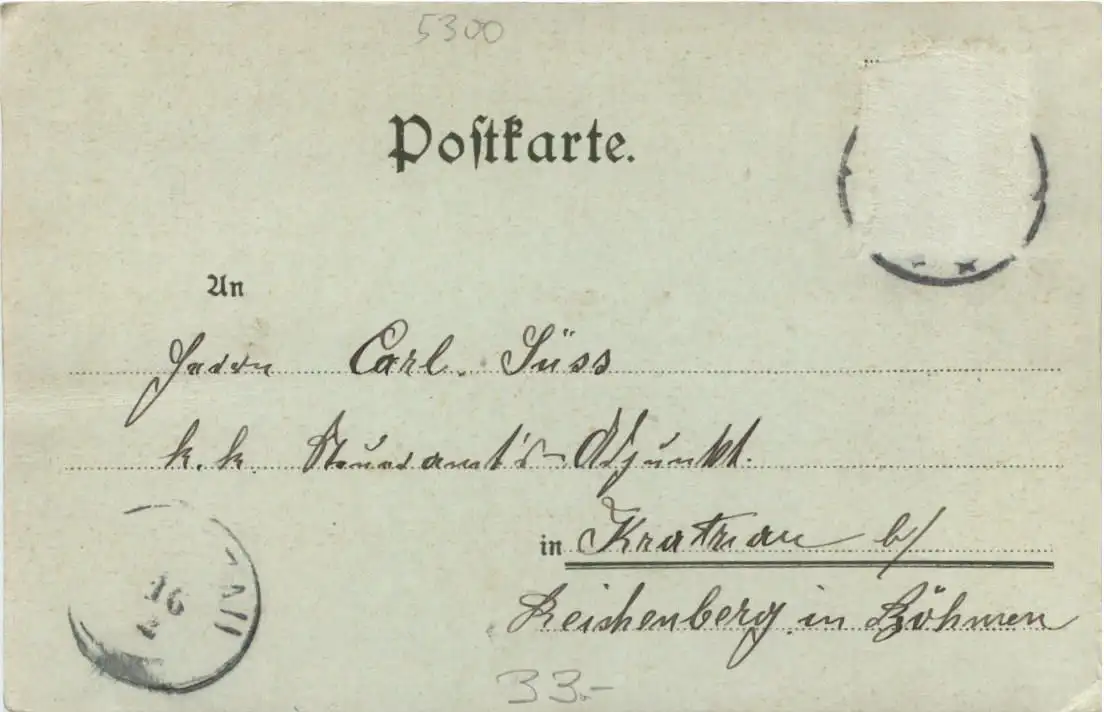 5300
Postkarte.
An
Herrn Carl. Süss
k. k. Steueramt's-Adjunkt.
in Kratzau b/
Reichenberg in Böhmen
16
2
33.-